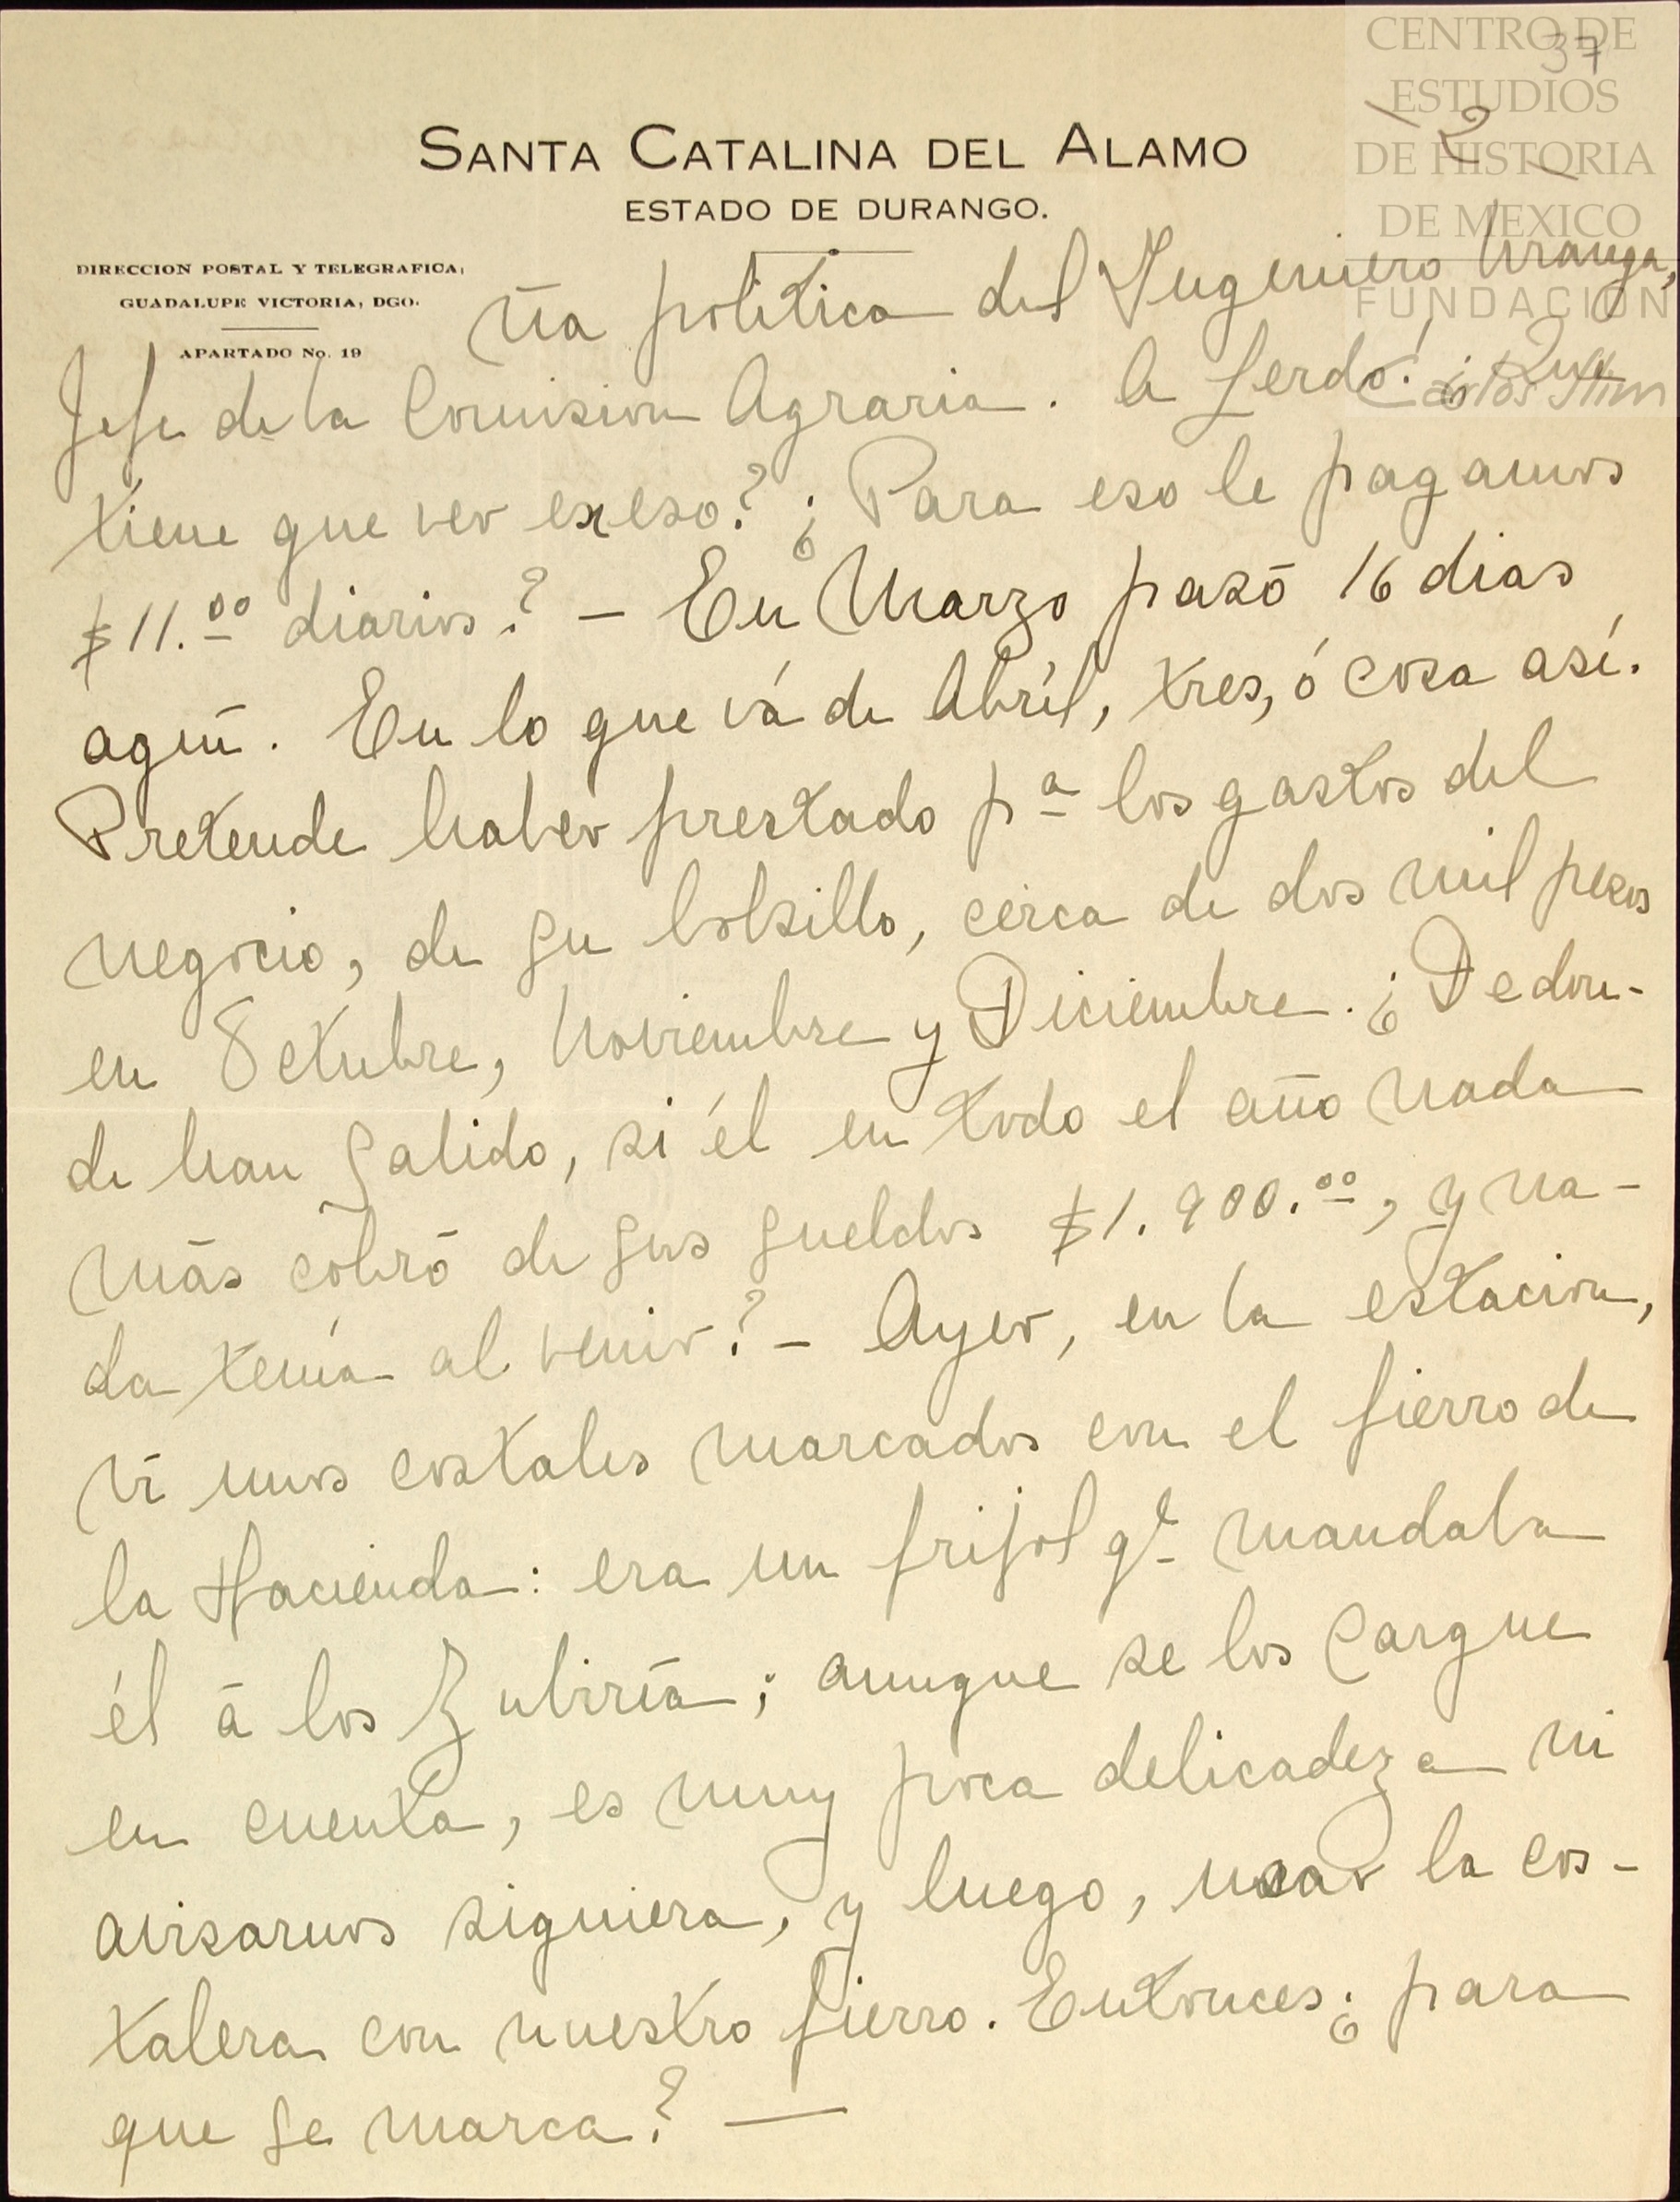 CENTRO DE
ESTUDIOS
DE HISTORIA
DE MEXICO
FUNDACION
Carlos Slim
37
2
SANTA CATALINA DEL ALAMO
ESTADO DE DURANGO.
DIRECCION POSTAL Y TELEGRAFICA,
GUADALUPE VICTORIA, DGO.
APARTADO No. 19
ña política del Ingeniero Uranga,
Jefe de la Comision Agraria. A Lerdo! ¿Que
tiene que ver en eso? ¿Para eso le pagamos
$11.00 diarios? — En Marzo pasó 16 dias
aquí. En lo que vá de Abríl, tres, ó cosa así.
Pretende haber prestado pa los gastos del
negocio, de su bolsillo, cerca de dos mil pesos
en Octubre, Noviembre y Diciembre. ¿De don-
de han salido, si él en todo el año nada
más cobró de sus sueldos $1.900.00, y na-
da tenía al venir? — Ayer, en la estacion,
ví unos costales marcados con el fierro de
la Hacienda: era un frijol qe mandaba
él á los Zubiría; aunque se los cargue
en cuenta, es muy poca delicadeza ni
avisarnos siquiera, y luego, usar la cos-
talera con nuestro fierro. Entonces ¿para
que se marca? —